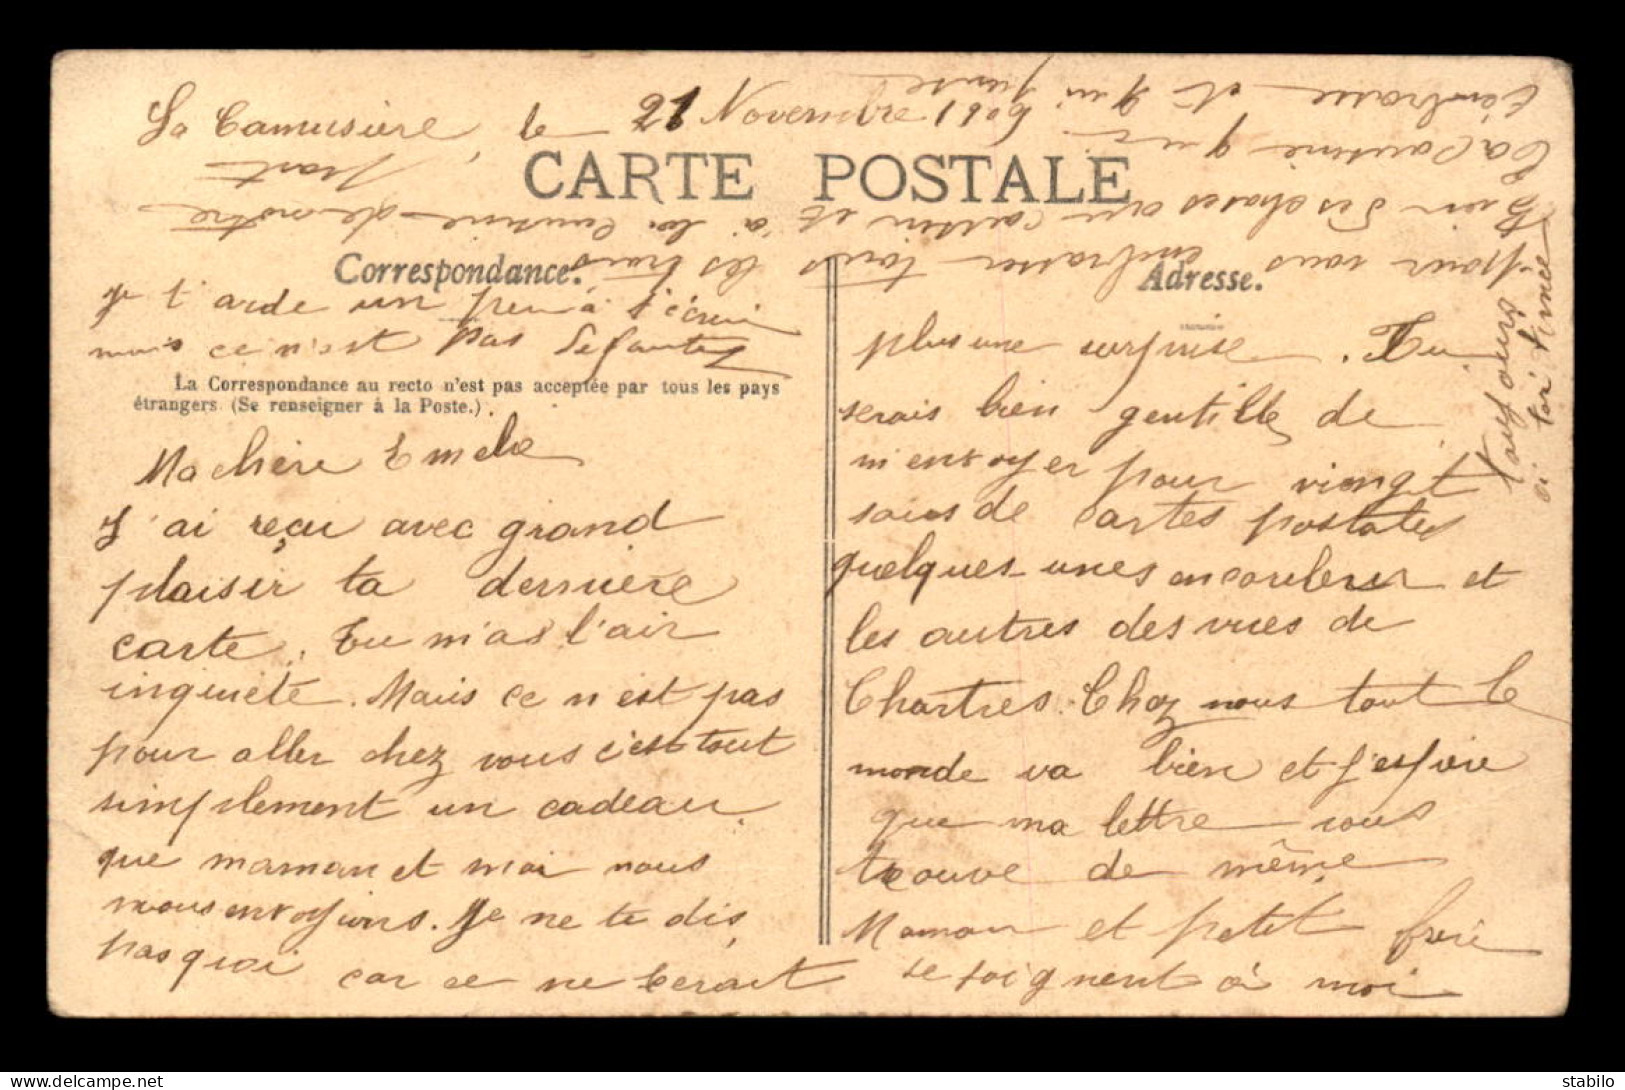 La Camusière, le 21 Novembre 1909
CARTE POSTALE
Correspondance.
Je t'arde un peu à t'écrire
mais ce n'est pas
La Correspondance au recto n'est pas acceptée par tous les pays
étrangers (Se renseigner à la Poste.)
Ma chère
J'ai reçu avec grand
plaisir ta dernière
carte. Tu m'as l'air
inquiète. Mais ce n'est pas
pour aller chez vous c'est tout
simplement un cadeau
que maman et moi nous
vous envoyions. Je ne te dis
pas quoi car ce ne serait
Adresse.
plus une surprise. Tu
serais bien gentille de
m'envoyer pour vingt
sous de cartes postales
quelques-unes en couleur et
les autres des vues de
Chartres. Chez nous tout le
monde va bien et j'espère
que ma lettre vous
trouve de même
Maman et petit frère
se joignent à moi
pour vous embrasser tous les trois
Bien des choses au cousin et à la cousine de notre
part
Ta cousine qui
t'embrasse et qui pense
toujours
à toi
delcampe.net
stabilo